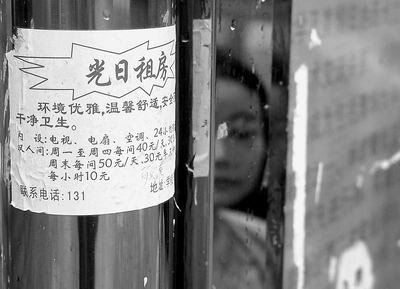 光日租房
环境优雅,温馨舒适,安全
干净卫生。
内 设:电视、电扇、空调、24小
双人间:周一至周四每间40元/天、30元
周末每间50元/天、30元
每小时10元
地址:
联系电话:131